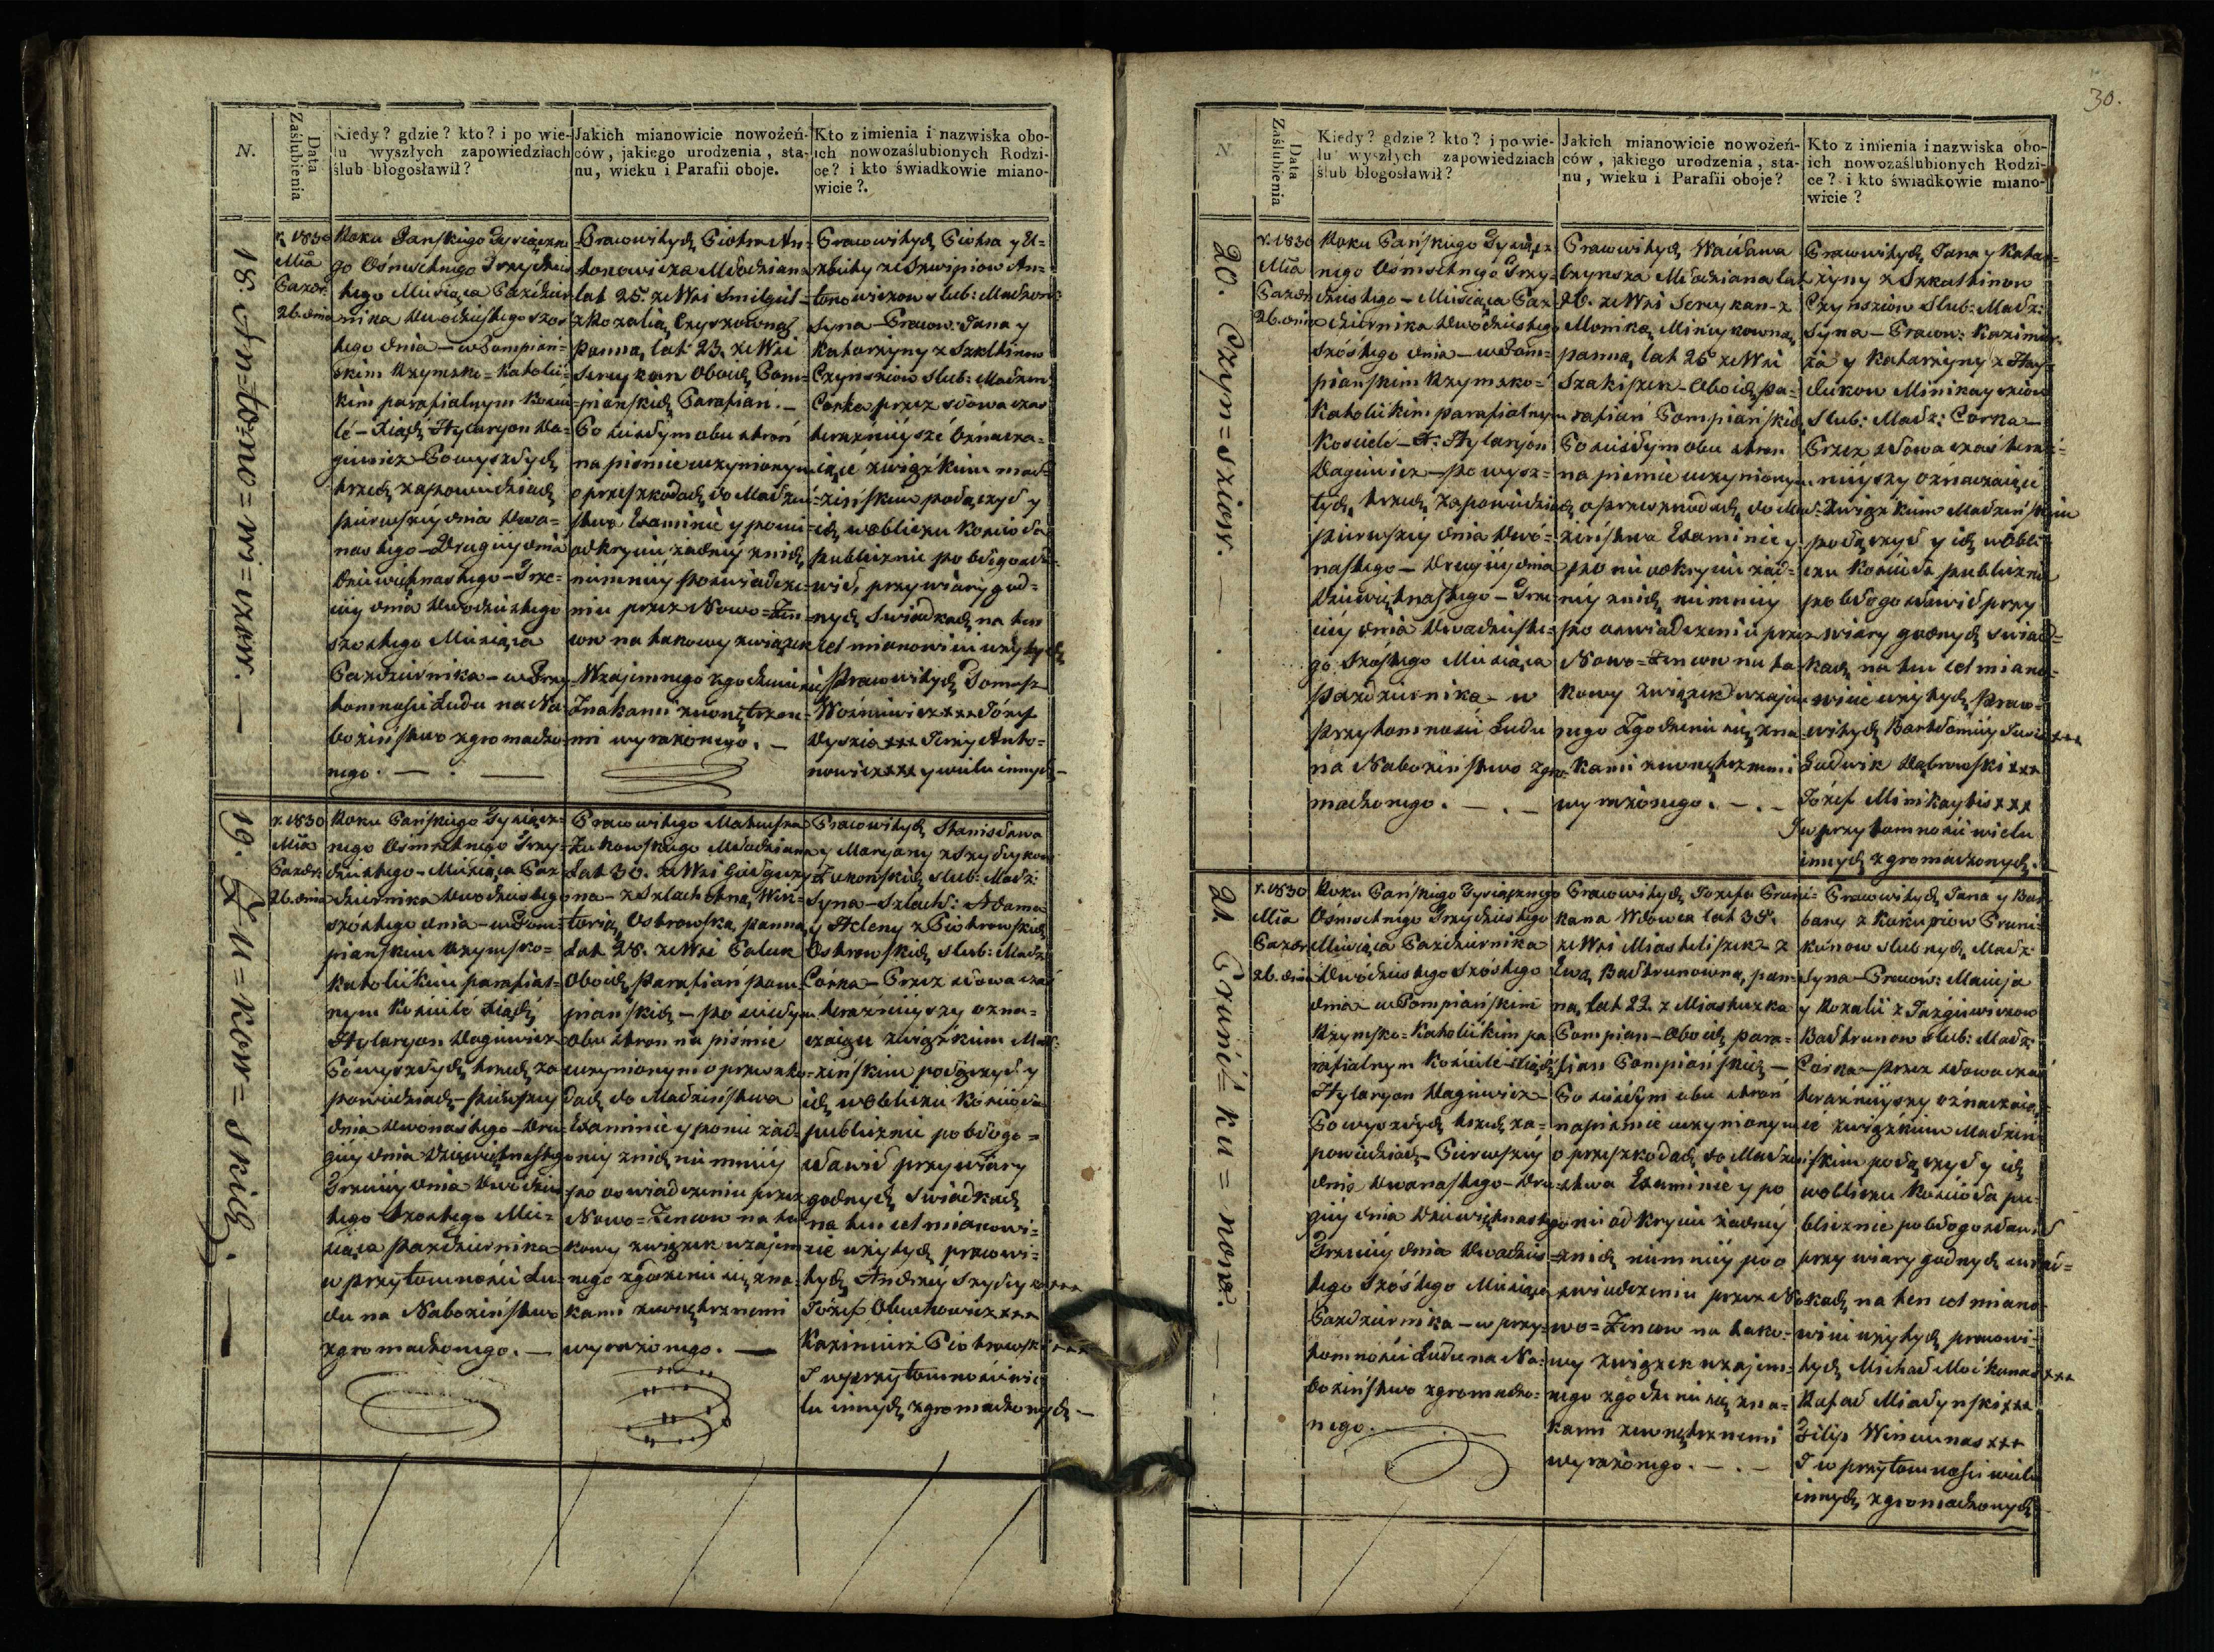 N.
Data
Zaślubienia
Kiedy? gdzie? kto? i po wie-
lu wyszłych zapowiedziach
ślub błogosławił?
Jakich mianowicie nowożeń-
ców, jakiego urodzenia, sta-
nu, wieku i Parafii oboje.
Kto z imienia i nazwiska obo-
ich nowozaślubionych Rodzi-
ce? i kto świadkowie miano-
wicie?.
18. An=to=no=wi=czow.
r. 1830
Mca
Paźdz:
26. dnia
Roku Pańskiego Tysiączne
go Ośmsetnego Trzydzies
tego Miesiąca Paździer
nika dwódziestego szos
tego dnia — w Pompiań=
skim Rzymsko=Katolic=
kim parafialnym Kości
le — Xiądz Hylaryon Wa=
giewicz — Po wyszłych
trzech zapowiedziach
pierwszey dnia dwu=
nastego — Drugiey dnia
dziewiętnastego — Trze=
ciey dnia dwodziestego
szostego Miesiąca
Października — w Przy
tomnosci Ludu na Na=
bożeństwo zgromadzo
nego.
Pracowitych Piotra An=
tonowicza Młodziana
lat 25. ze Wsi Smilgul=
z Rozalią Czyżowną
Panną, lat 23. ze Wsi
Sereykan Oboich Pom=
piańskich Parafian. —
Po ścisłym obu stron
na pismie uczynionym
o przeszkodach do Małżeń=
stwa Examinie y po nie
odkryciu żadney z nich,
niemniey po oswiadcze=
niu przez Nowo=Żeń=
cow na takowy związek
Wzajemnego zgodzenia się
Znakami zewnętrzne=
mi wyrażonego. —
Pracowitych Piotra y El=
żbiety ze Szwipiow An=
tonowiczow slub: Małżon:
Syna — Pracow: Jana y
Katarzyny z Szkltinow
Czynsziow Slub: Małżon:
Corka przez słowa czas
terazniysze Oznacza=
iące związkiem mał=
żeńskim połączył y
ich w obliczu Kościoła
publicznie pobłogosła=
wił, przy wiary god=
nych Swiadkach na ten
cel mianowicie użytych
Pracowitych Tomasz
Woźniewicz xxx Józef
Dyszia xxx Jerzy Anto=
nowicz xxx y wielu innych —
19. Żu=kow=skich.
r. 1830
Mca
Paźdz:
26. dnia
Roku Pańskiego Tysiącz=
nego Ośmsetnego Trzy=
dziestego — Miesiąca Paź
dziernika dwodziestego
szóstego dnia — w Pom=
piańskim Rzymsko=
Katolickim parafial=
nym Kościele Xiądz
Hylaryon Wagiewicz
Po wyszłych trzech za
powiedziach — pierwszey
dnia dwonastego — Dru=
giey dnia Dziewiętnastego
Trzeciey dnia Dwodzies
tego Szostego Mie=
siąca Października=
w przytomności Lu=
du na Nabożeństwo
zgromadzonego. —
Pracowitego Mateusza
Żukowskiego Młodziana
Lat 30. ze Wsi
na — z Szlachetną Wik=
torią Ostrowską panną
Lat 28. ze Wsi Paluk
Oboich Parafian pom=
piańskich — po ścisłym
Obu stron na piśmie
uczynionym o przeszko=
dach do Małżeństwa
Examinie y po nie żad=
ney z nich niemniey
po oswiadczeniu przez
Nowo=Żencow na ta
kowy związek wzajem
nego zgodzenia się zna=
kami zewnętrznemi
wyrażonego. —
Pracowitych Stanisława
y Maryany z
Żukowskich slub: Małż:
Syna — Szlach: Adama
y Heleny z Piotrowskich
Ostrowskich slub: Małż:
Córka — Przez słowa czas
teraźniejszy ozna=
czaiące związkiem Mał=
żeńskim połączył y
ich w Obliczu Kościoła
publicznie pobłogo=
sławił przy wiary
godnych Swiadkach
na ten cel mianowi=
cie użytych pracowi=
tych Andrzey xxx
Józef Obuchowicz xxx
Kazimierz Piotrowski xxx
I w przytomności wie
lu innych zgromadzonych —
30.
N.
Data
Zaślubienia
Kiedy? gdzie? kto? i po wie-
lu wyszłych zapowiedziach
ślub błogosławił?
Jakich mianowicie nowożeń-
ców, jakiego urodzenia, sta-
nu, wieku i Parafii oboje?
Kto z imienia i nazwiska obo-
ich nowozaślubionych Rodzi-
ce? i kto świadkowie miano-
wicie?
20. Czyn=sziow.
r. 1830
Mca
Paźdz
26. dnia
Roku Pańskiego Tysiącz
nego Ośmsetnego Trzy=
dziestego — Miesiąca Paź=
dziernika dwódziestego
Szóstego dnia — w Pom=
piańskim Rzymsko=
Katolickim parafialnym
Kościele — X: Hylaryon
Wagiewicz — po wysz=
łych trzech zapowiedziach
pierwszey dnia dwó=
nastego — drugiey dnia
Dziewiętnastego — Trze
ciey dnia Dwadzieste=
go Szóstego Miesiąca
Października — w
przytomności Ludu
na Nabożeństwo zgro
madzonego. —
Pracowitych Wacława
Czynsza Młodziana lat
26. ze Wsi Sereykan — z
Moniką Minieykowną,
panną, lat 26 ze Wsi
Szakiszek — Oboich pa=
rafian Pompiańskich
Po ścisłym obu stron
na piśmie uczynionym
o przeszkodach do Mał=
żeństwa Examinie y
po nie odkryciu żad=
ney z nich niemniey
po oswiadczeniu przez
Nowo=Żencow na ta
kowy związek wzajem
nego Zgodzenia się zna=
kami zewnętrznemi
wyrażonego. —
Pracowitych Jana y Katar=
zyny z Szkaltinow
Czynsziow Slub: Małż:
Syna — Pracow: Kazimie=
rza y Katarzyny z
Slub: Małż: Corka —
Przez słowa czas teraz=
nieyszy oznaczaiące
Związkiem Małżeńskim
połączył y ich w Obli
czu Kościoła publicznie
pobłogosławił przy
wiary godnych swiad=
kach na ten cel miano=
wicie użytych Praco=
witych Bartłomiey xxx
Ludwik Dąbrowski xxx
Józef Minikaytis xxx
I w przytomności wielu
innych zgromadzonych.
21. Prunié=ku=now.
r. 1830
Mca
Paźdz
26. dnia
Roku Pańskiego Tysiącznego
Ośmsetnego Trzydziestego
Miesiąca Października
Dwódziestego Szóstego
dnia w Pompiańskim
Rzymsko=Katolickim pa
rafialnym Kościele — Xiądz
Hylaryon Wagiewicz —
Po wyszłych trzech za=
powiedziach — Pierwszey
dnia dwanastego — Dru=
giey dnia dziewiętnastego
Trzeciey dnia dwadzies
tego Szóstego Miesiąca
Października — w przy=
tomności Ludu na Na=
bożeństwo zgromadzo=
nego.
Pracowitych Jozefa Pruni=
kana Wdowca lat 35.
ze Wsi Miasteliszek z
Ewą Bałtrunowną, pan=
ną, lat 22. z Miasteczka
Pompian — Oboich para=
fian Pompiańskich —
Po ścisłym obu stron
na piśmie uczynionym
o przeszkodach do Małżeń
stwa Examinie y po
nie odkryciu żadney
z nich niemniey po o
swiadczeniu przez No
wo=Żencow na tako=
wy związek wzajem=
nego zgodzenia się zna=
kami zewnętrznemi
wyrażonego. —
Pracowitych Jana y Bar
bary z Kukupiow Pruni=
kunow slubnych Małż:
Syna — Pracow: Macieja
y Rozalii z
Bałtrunow slub: Małż:
Córka — przez słowa czas
teraźnieyszy oznaczaią=
ce związkiem Małżeń
skim połączył y ich
w obliczu Kościoła pu=
blicznie pobłogosławił
przy wiary godnych swiad=
kach na ten cel miano
wicie użytych pracowi=
tych Michał Mockunas xxx
Rafał Miadynski xxx
Filip xxx
I w przytomności wielu
innych zgromadzonych